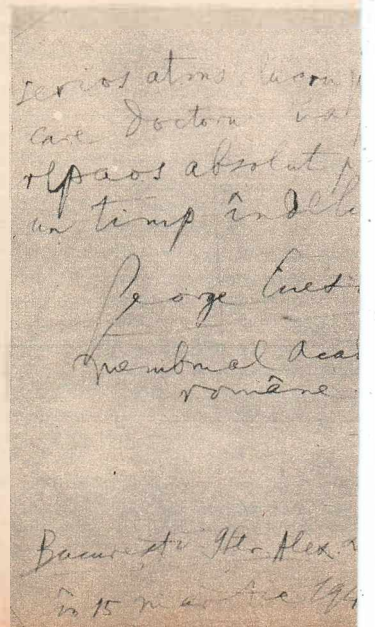 serios atins, lucru
care doctorii
repaos absolut
un timp îndel
George Enes
membru al Aca
române
București Str. Alex.
în 15 martie 194